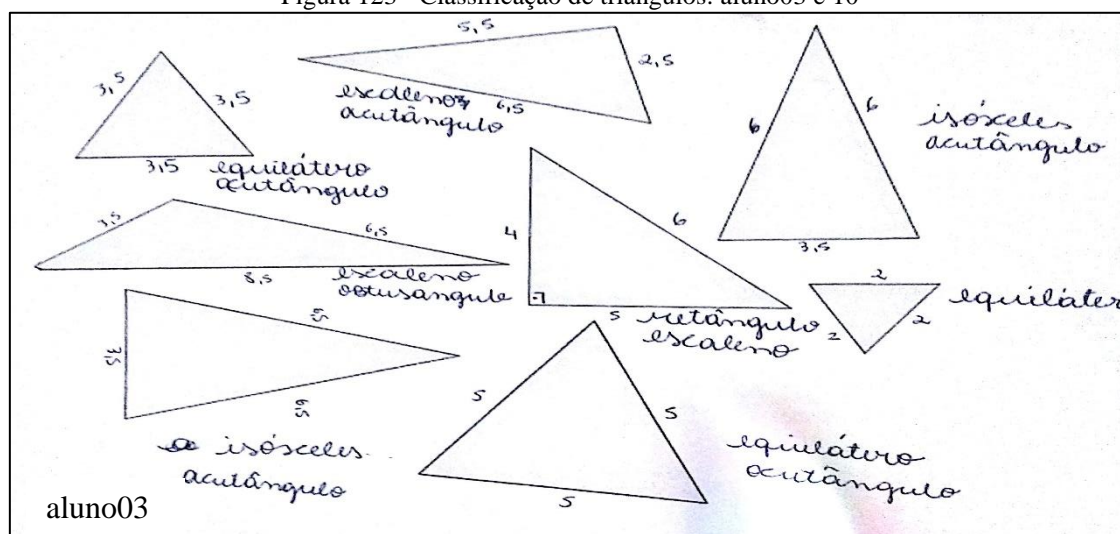 Figura 123 - Classificação de triângulos: aluno03 e 10
3,5
3,5
3,5
equilátero
acutângulo
5,5
2,5
6,5
escaleno
acutângulo
6
6
3,5
isósceles
acutângulo
3,5
6,5
8,5
escaleno
obtusangulo
4
6
5
retângulo
escaleno
2
2
2
equiláter
3,5
6,5
6,5
isósceles
acutângulo
5
5
5
equilátero
acutângulo
aluno03